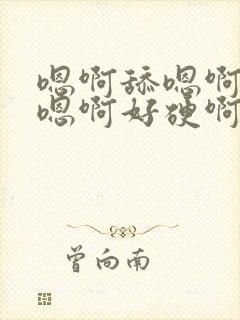 嗯啊舔嗯啊
嗯啊好硬啊
曾向南